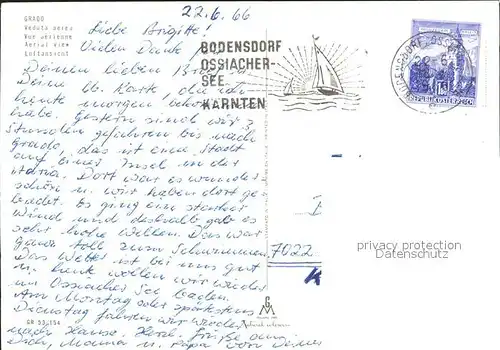 22.6.66
GRADO
Veduta aerea
Aerial view
Luftansicht
Liebe Brigitte!
Vielen Dank
BODENSDORF
OSSIACHER-
SEE
KÄRNTEN
BODENSDORF OSSIACH
REPUBLIK ÖSTERREICH
Deinen lieben Brief u.
Deine lb. Karte, die ich
heute morgen bekommen
habe. Gestern sind wir 3
Stunden gefahren bis nach
Grado, das ist eine Stadt
auf einer Insel in der
Adria. Dort war es wunder-
schön u. wir haben dort ge-
badet. Es ging ein starker
Wind und deshalb gab es
sehr hohe Wellen. Das war
ganz toll zum Schwimmen.
7022
privacy protection
Datenschutz
Das Wetter ist bei uns gut
u. heute wollen wir wieder
im Ossiacher See baden.
Am Montag oder spätestens
Dienstag fahren wir wieder
nach Hause. Herzl. Grüße an
Dich, Mama u. Papa von Deine
GR 53/154